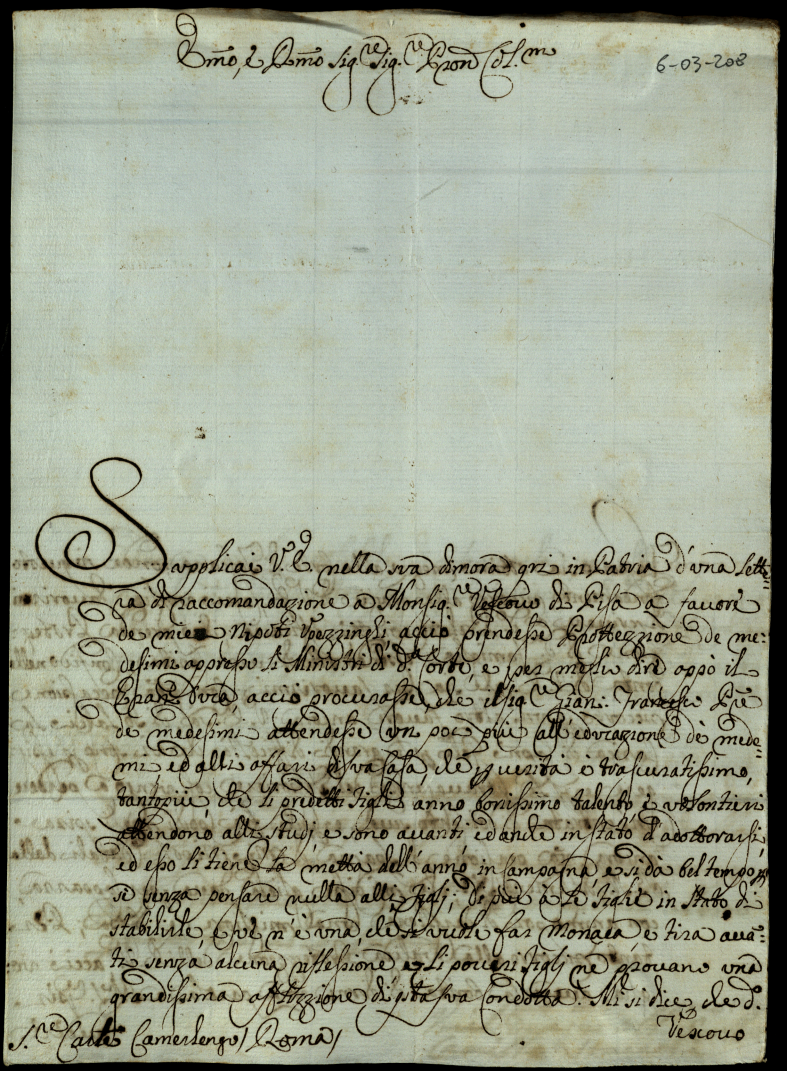 Emo, e Rmo Sig.re Sig.re Pron Col.mo
6-03-208
Supplicai V.E. nella sua dimora qui in Patria d'una lette=
ra di raccomandazione a Monsig.re Vescovo di Pisa a favore
de miei Nipoti Upezzinghi, acciò prendesse Prottezzione de me=
desimi appresso li Ministri di d.a Corte, e per meglio dire appo il
Gran Duca, acciò procurasse, che il Sig.re Gian: Francesco P̃re
de medesimi attendesse un poc più all'educazione dè mede=
mi, ed alli affari di sua Casa, che in verità è trascuratissimo,
tantopiù, che li predetti figli anno bonissimo talento e volontieri
attendono alli studj e sono avanti ed anche in stato d'adottorarsi,
ed esso li tiene la metta dell'anno in Campagna, e si dà bel tempo p
se senza pensare nulla alli figlj; Di più à le figlie in stato di
stabilirle, e ve n'è una, che si vuole far Monaca, e tira avan=
ti senza alcuna riflessione e li poveri figlj ne provano una
grandissima afflizzione di qsta sua Condotta. Mi si dice, che d.o
Vescovo
S.re Carle Camerlengo / Roma /